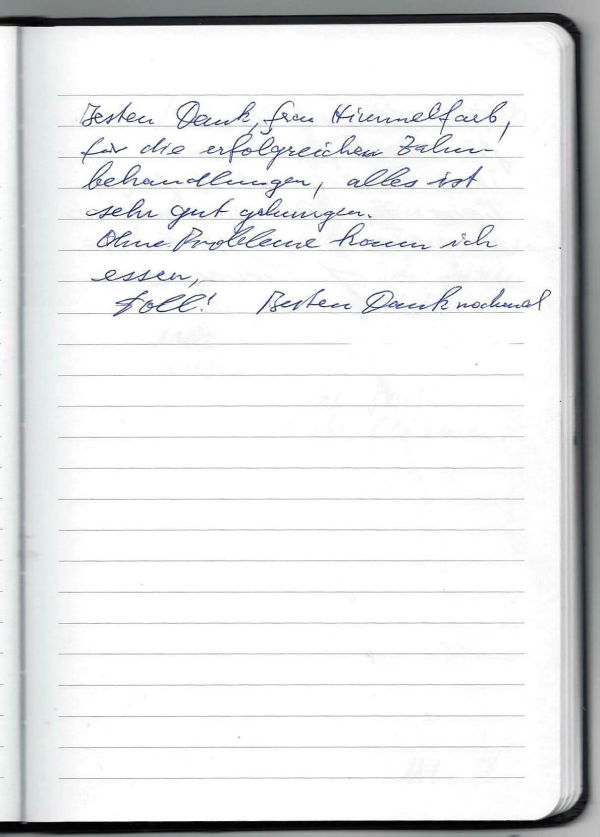 Besten Dank, Frau Himmelfarb,
für die erfolgreichen Zahn-
behandlungen, alles ist
sehr gut gelungen.
Ohne Probleme kann ich
essen,
Toll! Besten Dank nochmal